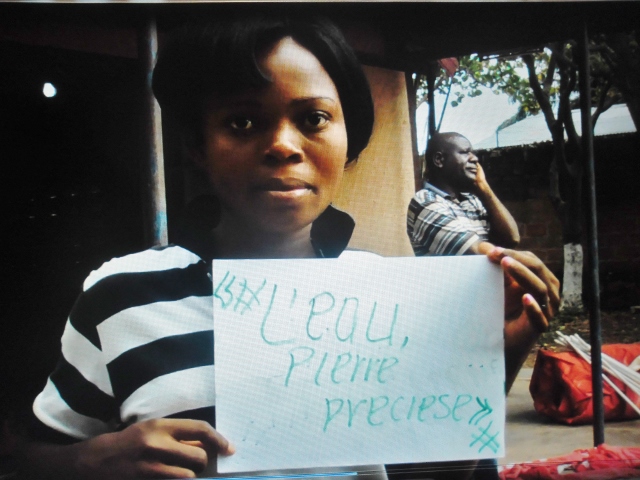 «#L'eau,
Pierre
preciese»
#